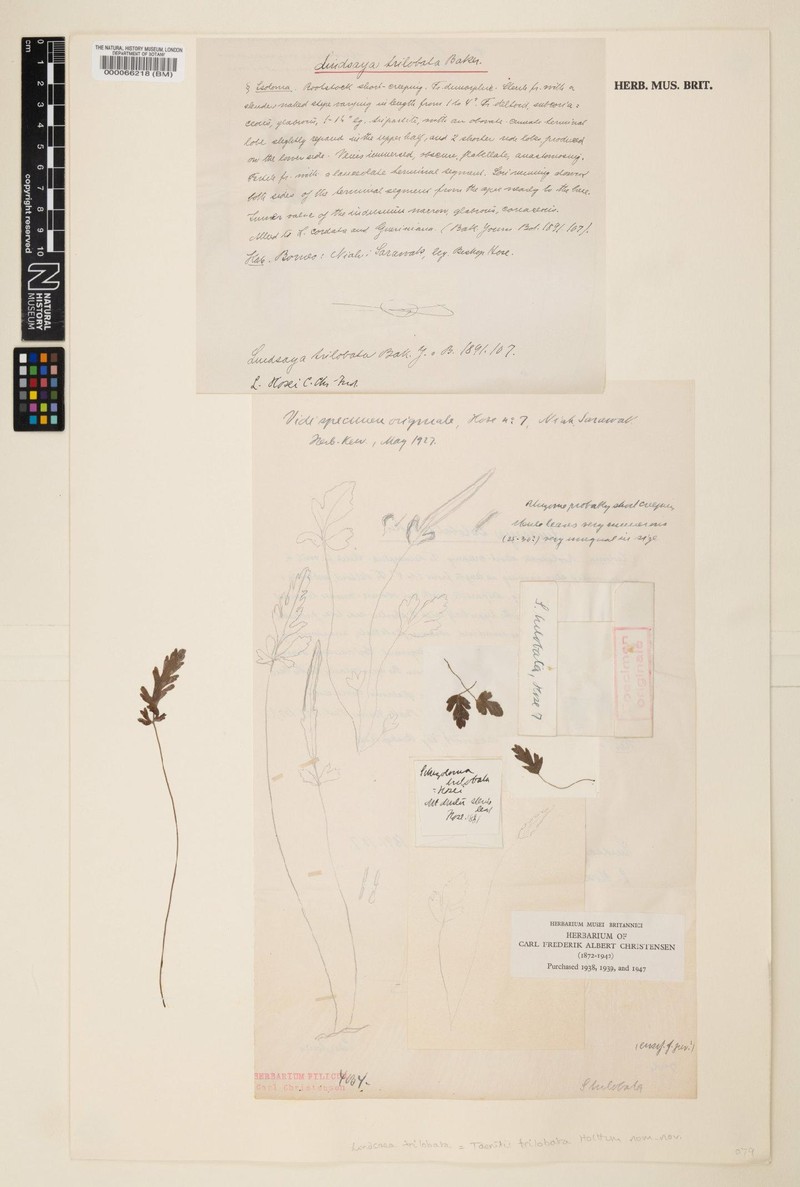 THE NATURAL HISTORY MUSEUM, LONDON
DEPARTMENT OF BOTANY
000066218 (BM)
HERB. MUS. BRIT.
cm
0
1
2
3
4
5
6
7
8
9
10
copyright reserved
NATURAL
HISTORY
MUSEUM
Lindsaya trilobata Baker.
§ Isoloma. Rootstock short-creeping. Fr. dimorphic. Sterile fr. with a
slender naked stipe varying in length from 1 to 4". Fr. deltoid, subcoria=
ceous, glabrous, 1-1½" lg. tripartite, with an obovate-cuneate terminal
lobe slightly repand in the upper half, and 2 shorter side lobes produced
on the lower side. Veins immersed, obscure, flabellate, anastomosing.
Fertile fr. with a lanceolate terminal segment. Sori running down
both sides of the terminal segment from the apex nearly to the base.
valve of the indusium narrow, glabrous, coriaceous.
Allied to L. cordata and (Bak. Journ. Bot. 1891. 107).
Hab. Borneo: Niah: Sarawak, leg. Bishop Hose.
Lindsaya trilobata Bak. J. o. B. 1891. 107.
L. Hosei C. Chr. Ind.
Vidi specimen originale, Hose nr 7, Niah, Sarawak
Herb. Kew, May 1927.
Rhizome probably short creeping
leaves very numerous
(25-30?) very unequal in size
S. trilobata, Hose 7
Schizoloma
trilobata
= Hosei
sterile
leaf
Hose
HERBARIUM MUSEI BRITANNICI
HERBARIUM OF
CARL FREDERIK ALBERT CHRISTENSEN
(1872-1942)
Purchased 1938, 1939, and 1947
HERBARIUM FILICUM
Carl Christensen
S. trilobata
Lindsaea trilobata = Taenitis trilobata Holttum nom. nov.
079